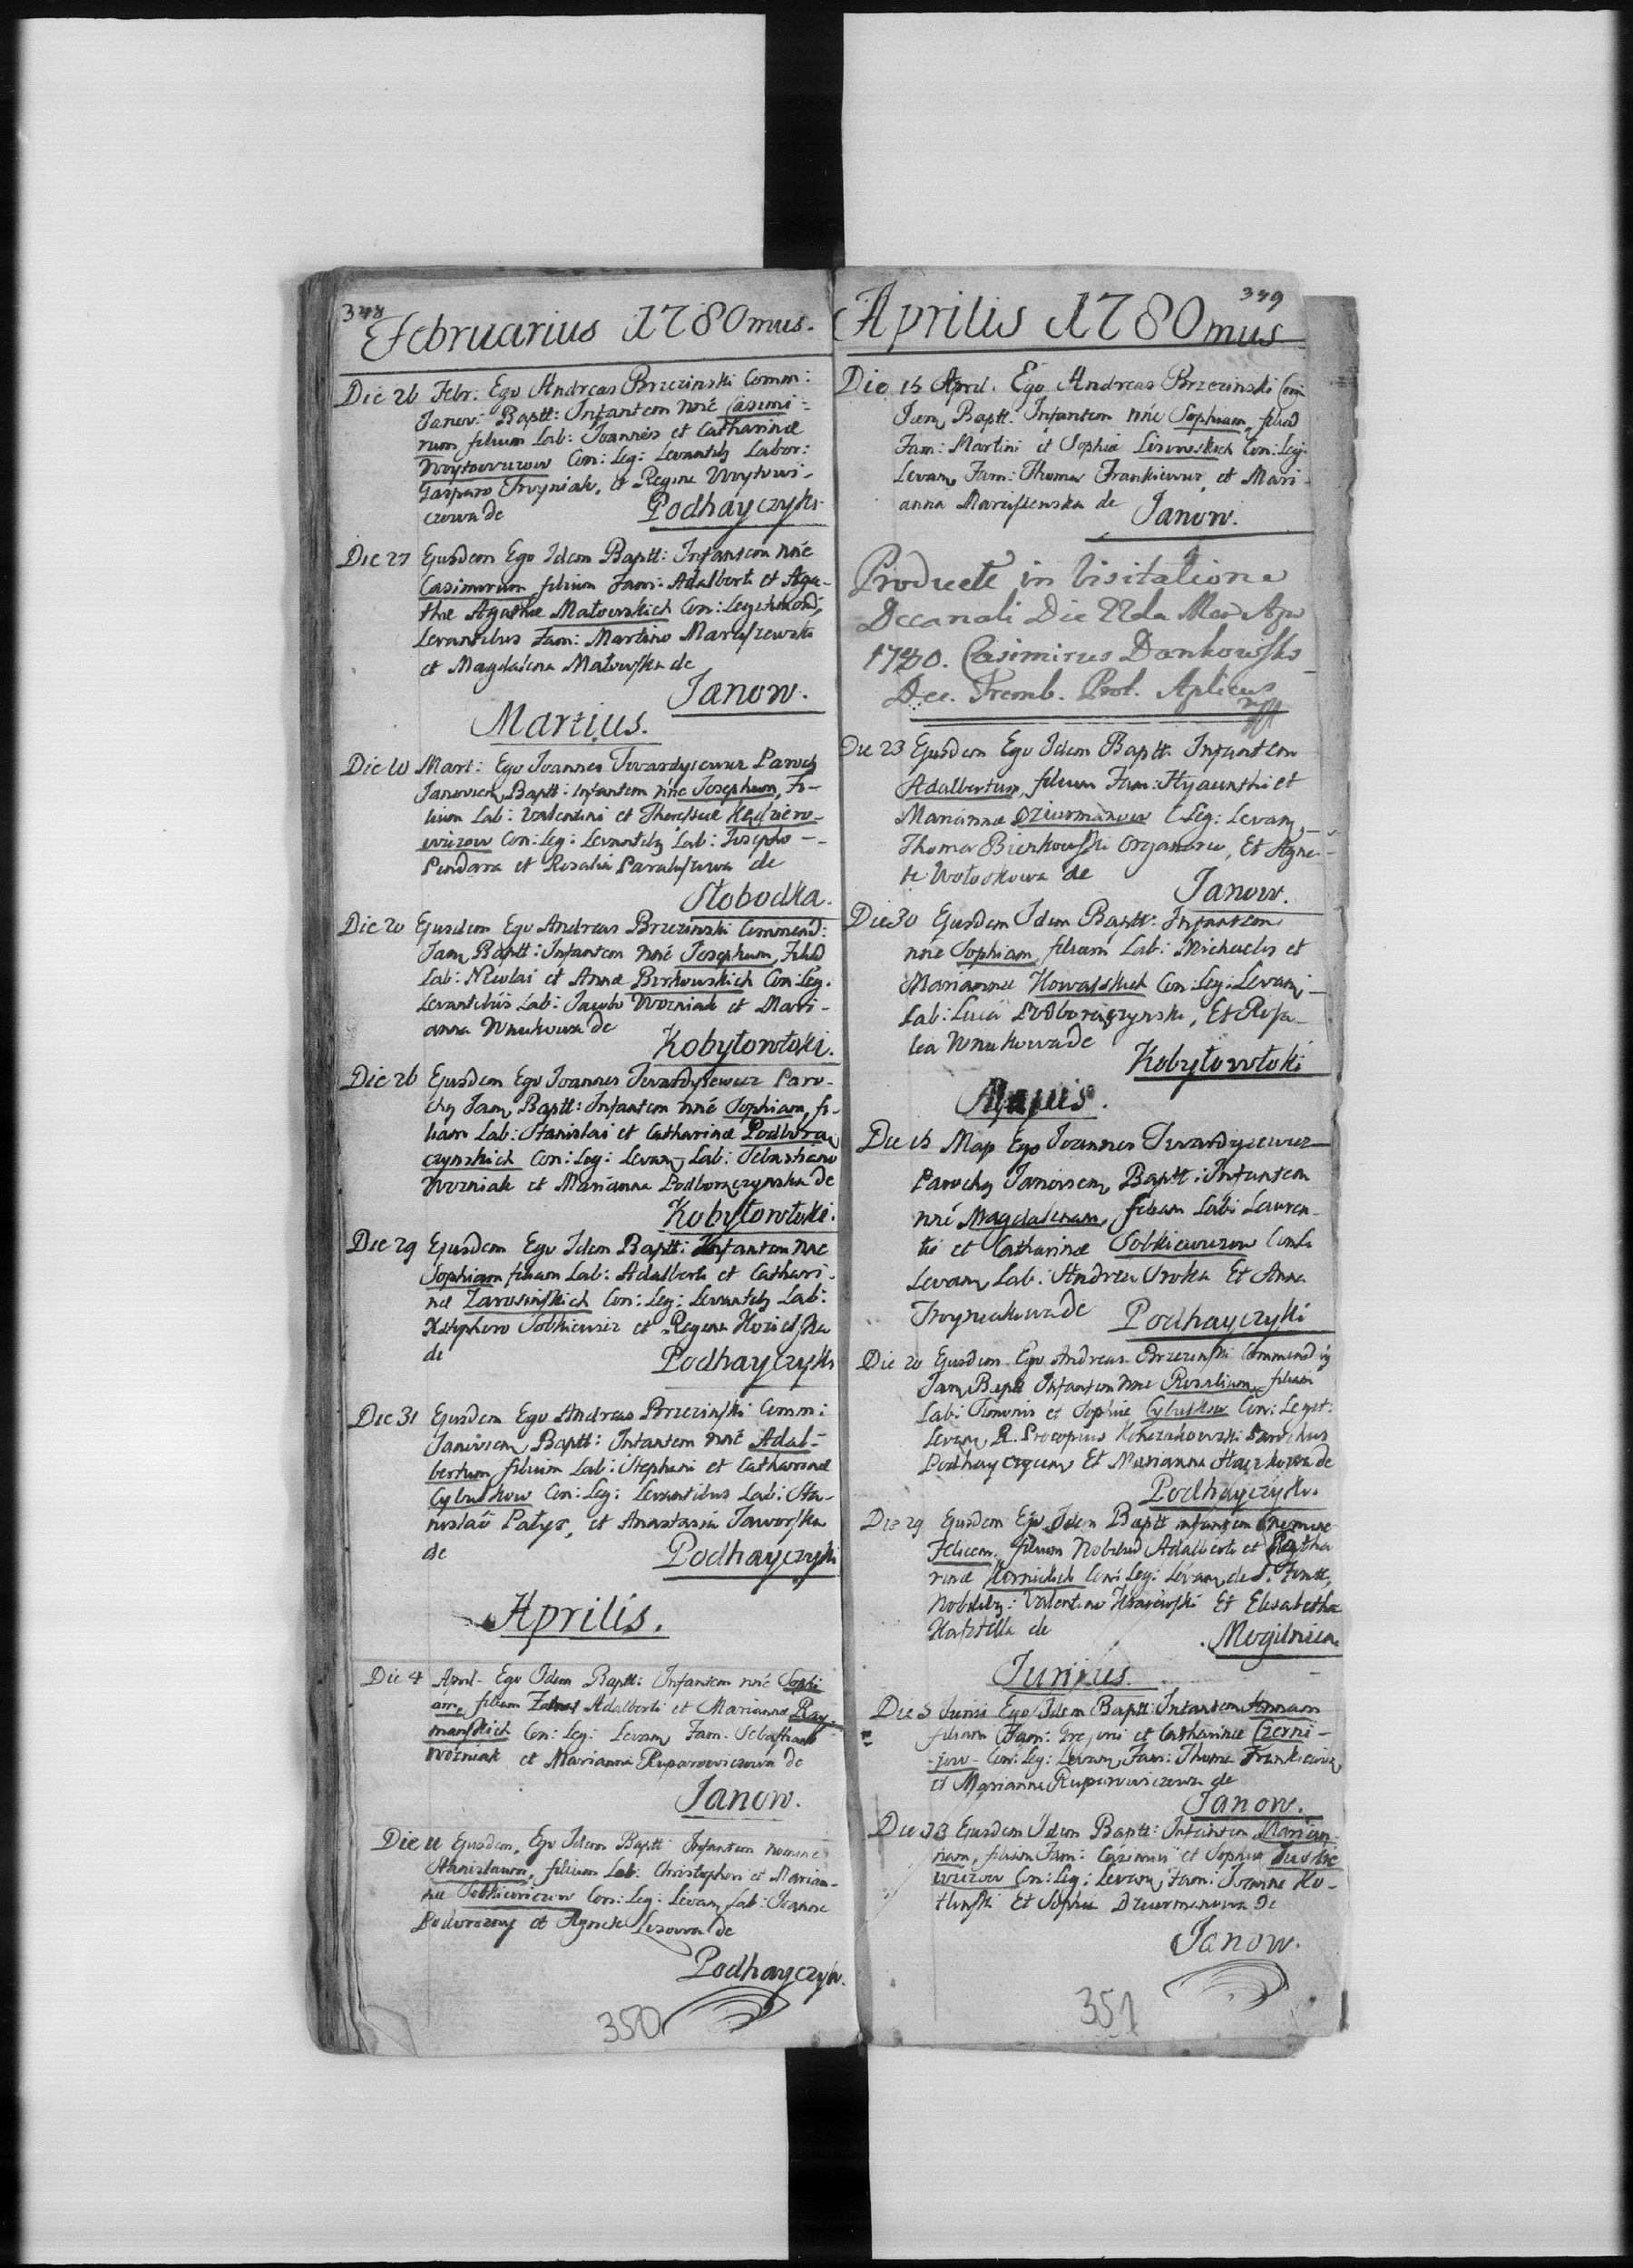 348
Februarius 1780mus.
Die 26 Febr: Ego Andreas Brzezinski Comm:
Janov: Baptt: Infantem nne Casimi-
rum filium Lab: Joannis et Catharinæ
Woytowiczow Con: Leg: Levantib Labor:
Gasparo Troyniak, et Regina Woytowi-
czowa de Podhayczyki
Die 27 Ejusdem Ego Idem Baptt: Infantem nne
Casimirum filium Fam: Adalberti et Aga-
thæ Agathæ Małowskich Con: Legit:
Levantibus Fam: Martino Maruszewski
et Magdalena Małowska de
Janow.
Martius.
Die 10 Mart: Ego Joannes Twardyiewicz Paroch
Janovien Baptt: Infantem nne Josephum, Fi-
lium Lab: Valentini et Theressiæ
wiczow Con: Leg: Levantib Lab: Josepho
et Rosalia de
Słobodka.
Die 20 Ejusdem Ego Andreas Brzezinski Commend:
Jan Baptt: Infantem nne Josephum, Filiu
Lab: Nicolai et Annæ Birkowskich Con: Leg:
Levantibus Lab: Jacobo Wozniak et Mari-
anna Wnukowa de
Kobyłowłoki.
Die 26 Ejusdem Ego Joannes Twardyiewicz Paro-
chy Jan Baptt: Infantem nne Sophiam, fi-
liam Lab: Stanislai et Catharinæ Podbora
czynskich Con: Leg: Levan Lab: Sebastiano
Wozniak et Marianna Podboraczynska de
Kobyłowłoki.
Die 29 Ejusdem Ego Idem Baptt: Infantem nne
Sophiam filiam Lab: Adalberti et Cathari-
næ Zarosinskich Con: Leg: Levantib Lab:
Sobkiewicz et Regina
de Podhayczyki
Die 31 Ejusdem Ego Andreas Brzezinski Comm:
Janovien Baptt: Infantem nne Adal-
bertum filium Lab: Stephani et Catharinæ
Cybulskow Con: Leg: Levantibus Lab: Sta-
nislao Patyr, et Anastasia Jaworska
de Podhayczyki
Aprilis.
Die 4 April. Ego Idem Baptt: Infantem nne Sophi
am, filiam Adalberti et Mariannæ Ray
manskich Con: Leg: Levan Fam: Sebastiano
Wozniak et Marianna Ruparowiczowa de
Janow.
Die 11 Ejusdem, Ego Idem Baptt: Infantem nomine
Stanislaum, filium Lab: Christophori et Marian-
næ Sobkiewiczow Con: Leg: Levan Lab: Joanne
et Agnete Lisowa de
Podhayczyki.
350
349
Aprilis 1780mus
Die 15 April. Ego Andreas Brzezinski Com
Jan Baptt: Infantem nne Sophiam, filiã
Fam: Martini et Sophiæ Lisowskich Con: Leg:
Levan Fam: Thoma Frankiewicz et Mari-
anna Maruszewska de Janow.
Producte in Visitatione
Decanali Die 22da
1780. Casimirus Dankowski
Dec. Tremb. Prot. Aplicus
Die 23 Ejusdem Ego Idem Baptt. Infantem
Adalbertum, filium Fam: Hyacinthi et
Mariannæ Dziurmanow C Leg: Levan
Thoma Bienkowski Organario, Et Agne-
te Wołoskowa de Janow.
Die 30 Ejusdem Idem Baptt: Infantem
nne Sophiam filiam Lab: Michaelis et
Mariannæ Kowalskich Con: Leg: Levan
Lab: Luca Podboraczynski, Et Rosa-
lia Wnukowa de
Kobyłowłoki
Majus.
Die 15 Maji Ego Joannes Twardyiewicz
Parochy Janovien Baptt: Infantem
nne Magdalenam, filiam Lab: Lauren-
tii et Catharinæ Sobkiewiczow
Levan Lab: Andrea Sroka Et Anna
Troyniakowa de Podhayczyki
Die 20 Ejusdem Ego Andreas Brzezinski Commend
Jan Baptt Infantem nne Rosaliam, filiam
Lab: Simonis et Sophiæ Cybulskow Con: Legit:
Levan R. Procopius Parochus
Podhayczycen Et Marianna de
Podhayczyki.
Die 29 Ejusdem Ego Idem Baptt infantem nomine
Felicem, filium Nobiliu Adalberti et Catha
rinæ Con: Leg: Levan de S. Fonte,
Nobilib: Valentino Et Elisabetha
de Mogilnica
Junius.
Die 5 Junii Ego Idem Baptt: Infantem Annam
filiam Fam: Gregorii et Catharinæ Czerni-
jow Con: Leg: Levan Fam: Thoma Frankiewicz
et Marianna Ruparowiczowa de
Janow.
Die 13 Ejusdem Idem Baptt: Infantem Marian-
nam, filiam Fam: Casimiri et Sophiæ Juskie
wiczow Con: Leg: Levan Fam: Joanne Ko-
tlinski Et Sophia Dziurmanowa De
Janow.
351